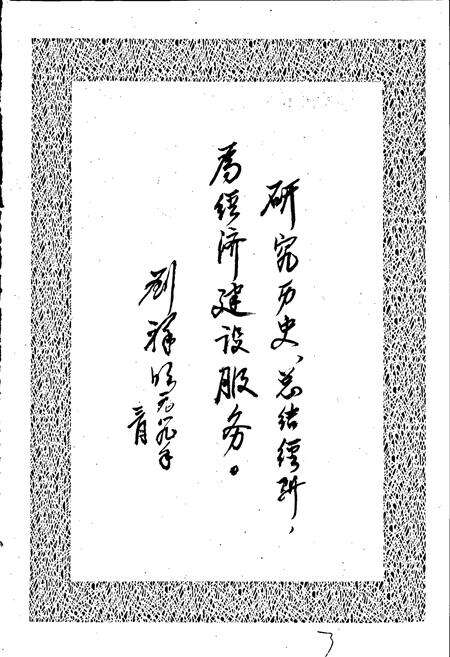 研究历史、总结经验，
为经济建设服务。
刘祥
三月